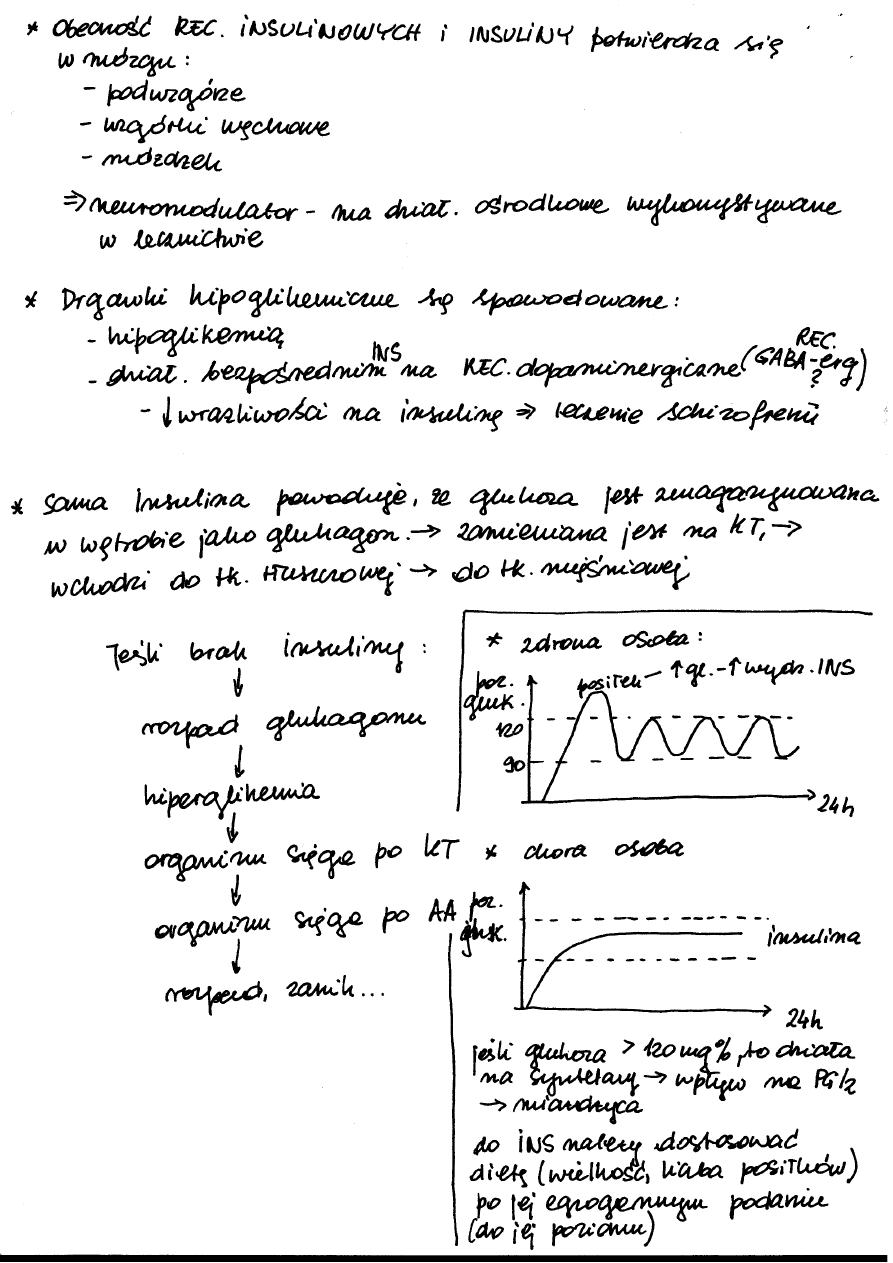 * Obecność REC. INSULINOWYCH i INSULINY potwierdza się
w mózgu:
- podwzgórze
- wzgórki węchowe
- móżdżek
⇒ neuromodulator - ma dział. ośrodkowe wykorzystywane
w lecznictwie
* Drgawki hipoglikemiczne są spowodowane:
- hipoglikemią
- dział. bezpośrednim INS na REC. dopaminergiczne (REC. GABA-erg ?)
- ↓ wrażliwości na insulinę ⇒ leczenie schizofrenii
* Sama insulina powoduje, że glukoza jest zmagazynowana
w wątrobie jako glukagon. → zamieniana jest na KT, →
wchodzi do tk. tłuszczowej → do tk. mięśniowej
Jeśli brak insuliny:
↓
rozpad glukagonu
↓
hiperglikemia
↓
organizm sięga po KT
↓
organizm sięga po AA
↓
rozpad, zanik...
* zdrowa osoba:
poz. gluk.
posiłek - ↑ gl. - ↑ wydz. INS
120
90
24h
* chora osoba
poz. gluk.
insulina
24h
jeśli glukoza > 120 mg%, to działa
na syntetazy → wpływ na
→ miażdżyca
do INS należy dostosować
dietę (wielkość, liczba posiłków)
po jej egzogennym podaniu
(do jej poziomu)